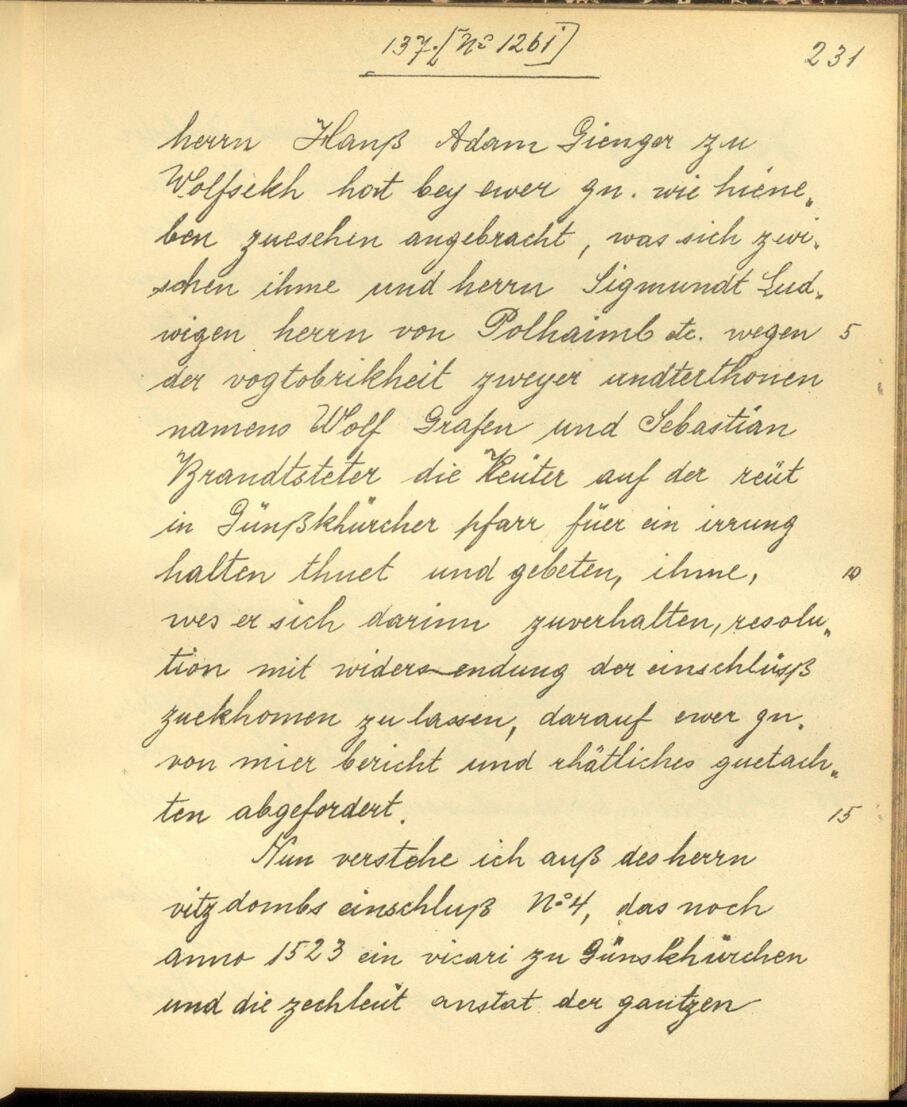 137. [Nº 1261]
231
herrn Hanß Adam Gienger zu
Wolfsekh hat bey ewer gn. wie hiene„
ben zuesehen angebracht, was sich zwi„
schen ihme und herrn Sigmundt Lud„
wigen herrn von Polhaimb etc. wegen 5
der vogtobrikheit zweyer undterthonen
namens Wolf Grafen und Sebastian
Brandtsteter die Reüter auf der reüt
in Günßkhürcher pfarr füer ein irrung
halten thuet und gebeten, ihme, 10
wes er sich darinn zuverhalten, resolu„
tion mit widersendung der einschlüsß
zuekhomen zu lassen, darauf ewer gn.
von mier bericht und rhätliches guetach„
ten abgefordert. 15
Nun verstehe ich auß des herrn
vitzdombs einschluß Nº 4, das noch
anno 1523 ein vicari zu Günskhürchen
und die zechleüt anstat der gantzen